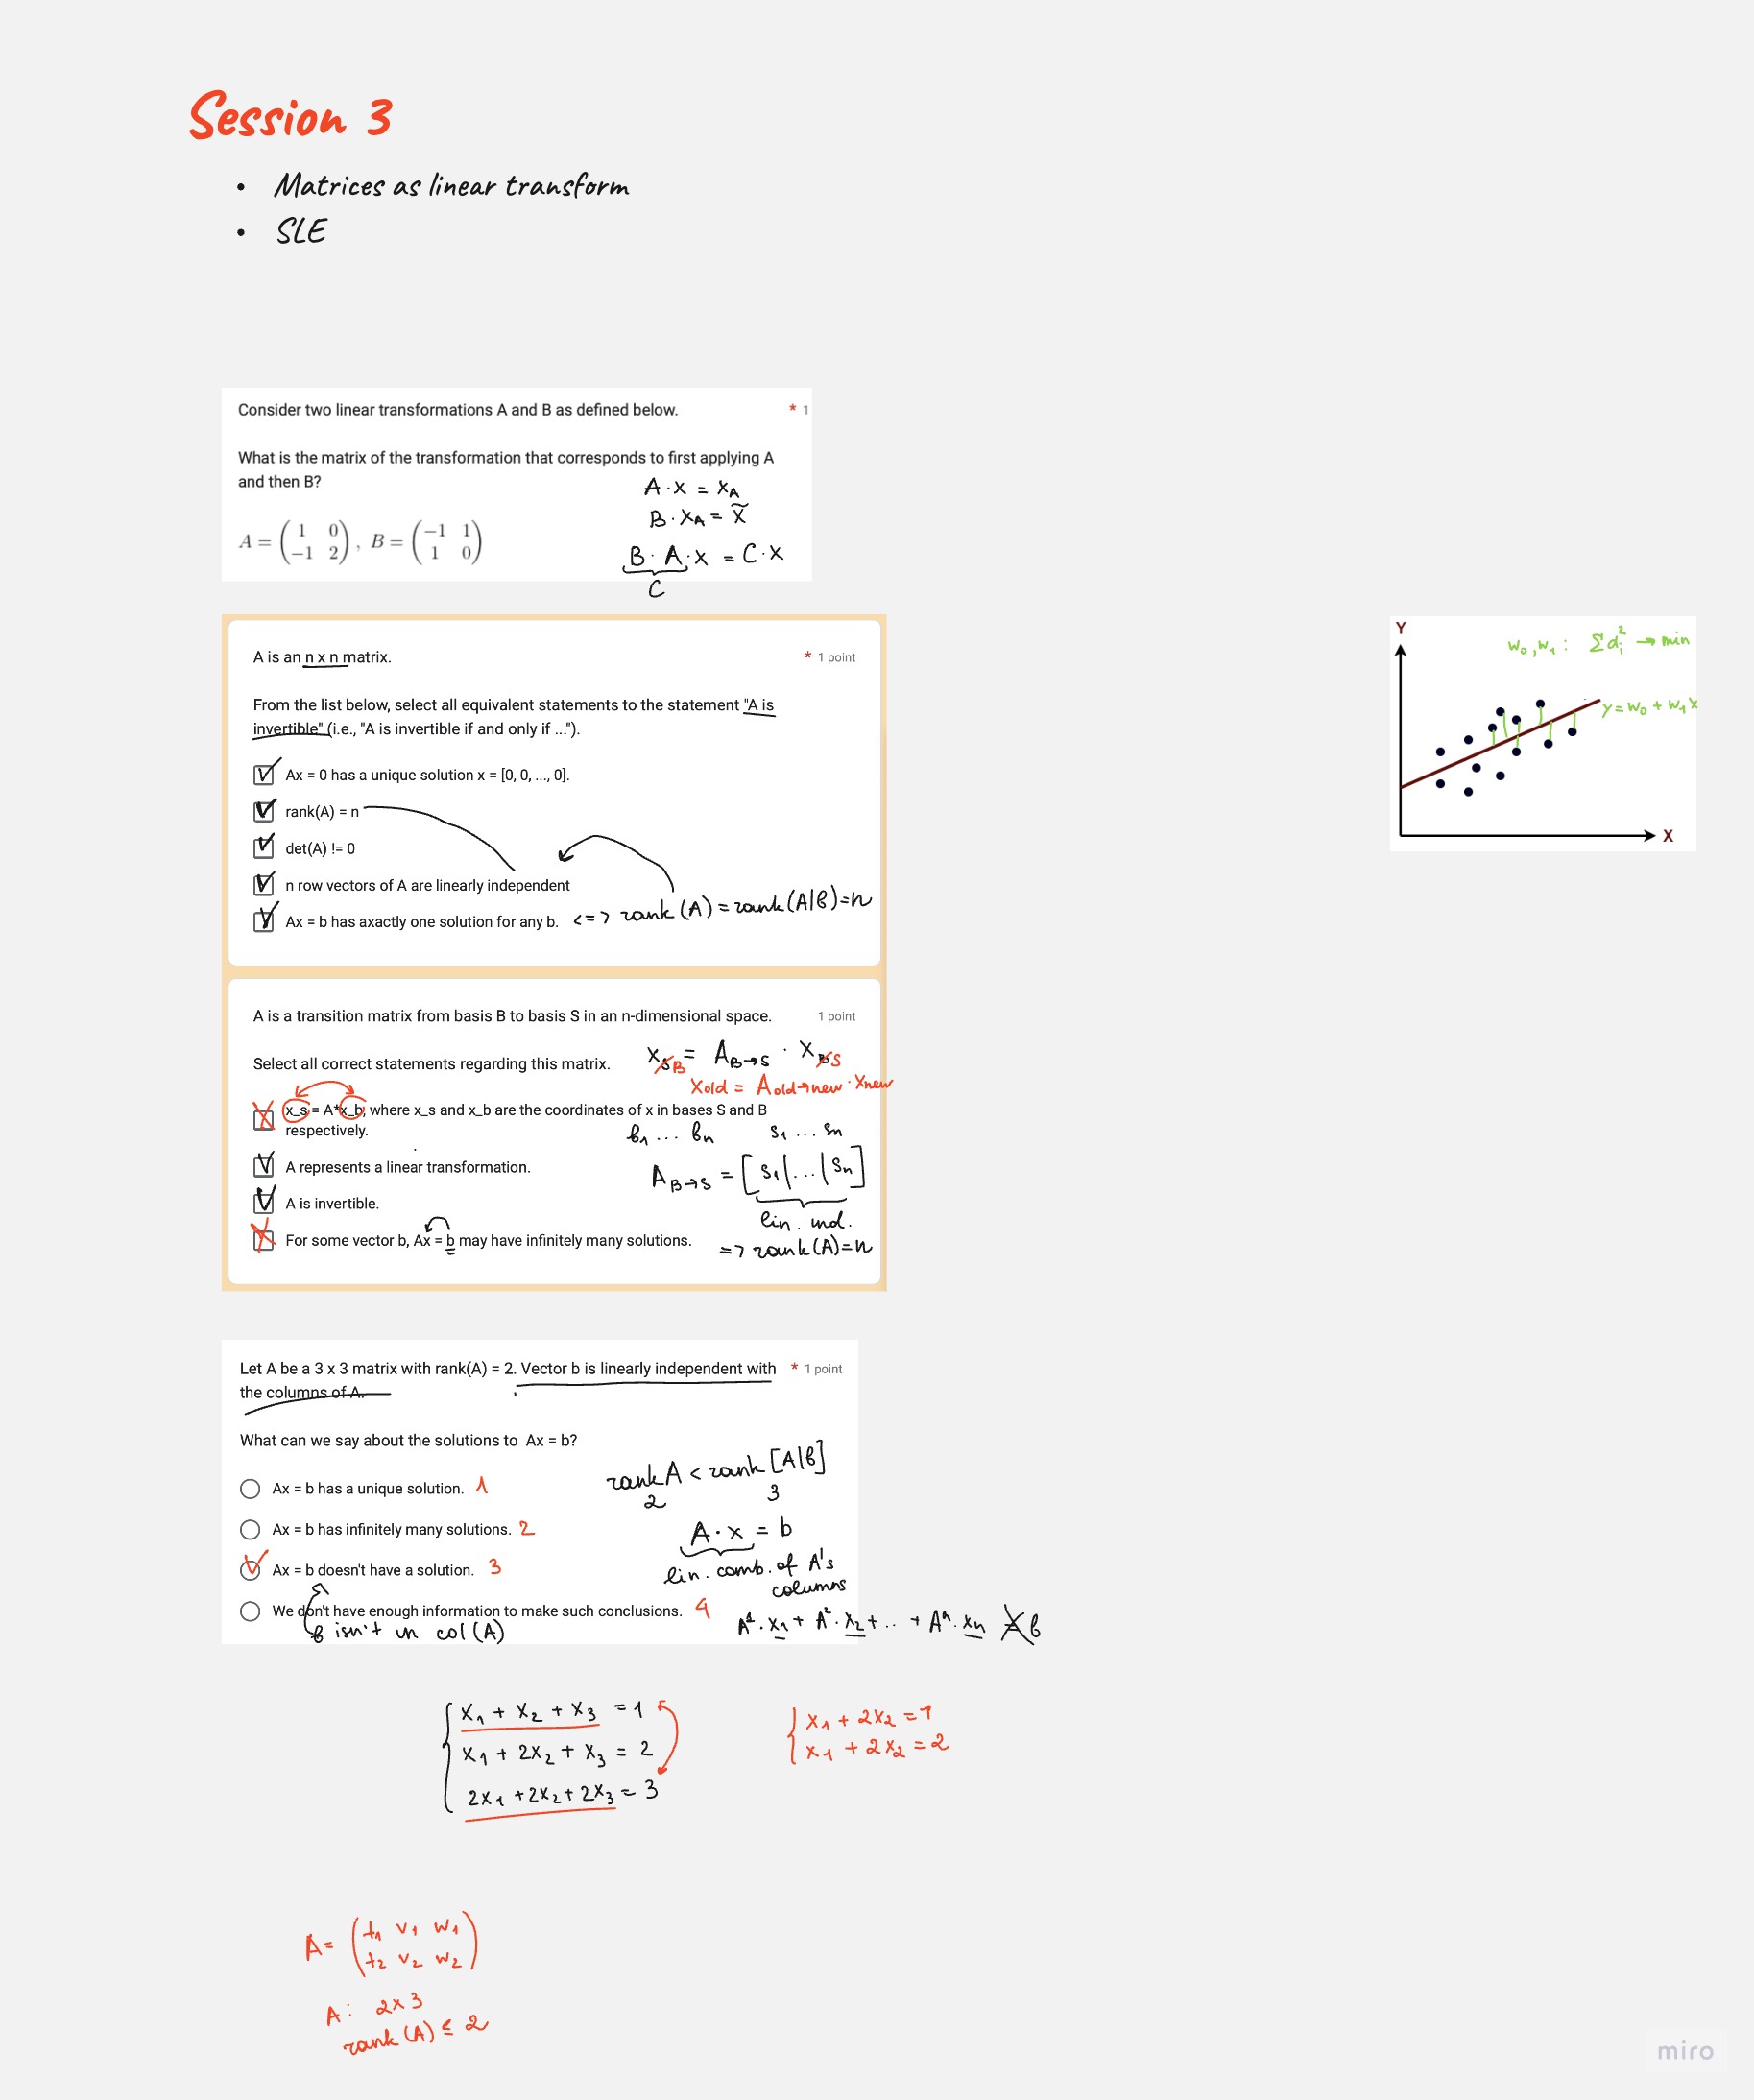 Session 3
• Matrices as linear transform
• SLE
Consider two linear transformations A and B as defined below. * 1
What is the matrix of the transformation that corresponds to first applying A
and then B?
A · x = x_A
B · x_A = x̃
B · A · x = C · x
C
A = ( 1 0 ; −1 2 ), B = ( −1 1 ; 1 0 )
A is an n x n matrix. * 1 point
From the list below, select all equivalent statements to the statement "A is
invertible" (i.e., "A is invertible if and only if ...").
Ax = 0 has a unique solution x = [0, 0, ..., 0].
rank(A) = n
det(A) != 0
n row vectors of A are linearly independent
Ax = b has axactly one solution for any b. <=> rank(A) = rank(A|b) = n
A is a transition matrix from basis B to basis S in an n-dimensional space. 1 point
Select all correct statements regarding this matrix.
x_S B = A_B→S · x_B S
x_old = A_old→new · x_new
x_s = A*x_b, where x_s and x_b are the coordinates of x in bases S and B
respectively.
b1 ... bn s1 ... sn
A represents a linear transformation.
A_B→S = [s1|...|sn]
A is invertible.
lin. ind.
For some vector b, Ax = b may have infinitely many solutions.
=> rank(A)=n
Let A be a 3 x 3 matrix with rank(A) = 2. Vector b is linearly independent with * 1 point
the columns of A.
What can we say about the solutions to Ax = b?
rank A < rank [A|b]
2 3
Ax = b has a unique solution. 1
Ax = b has infinitely many solutions. 2
A · x = b
Ax = b doesn't have a solution. 3
lin. comb. of A's
columns
We don't have enough information to make such conclusions. 4
b isn't in col(A)
A¹·x1 + A²·x2 + .. + Aⁿ·xn ≠ b
x1 + x2 + x3 = 1
x1 + 2x2 + x3 = 2
2x1 + 2x2 + 2x3 = 3
x1 + 2x2 = 1
x1 + 2x2 = 2
A = ( t1 v1 w1 ; t2 v2 w2 )
A: 2x3
rank(A) ≤ 2
Y
w0, w1: Σ di² → min
y = w0 + w1 x
X
miro